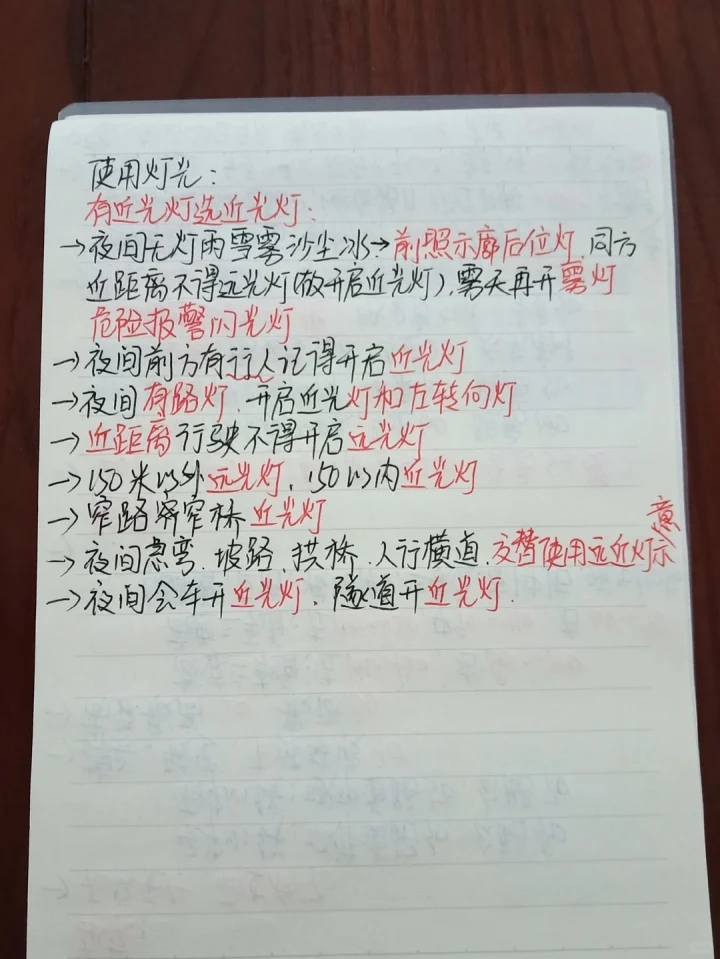 使用灯光:
有近光灯选近光灯:
→夜间无灯雨雪雾沙尘冰→前照示廓后位灯,同方
近距离不得远光灯(故开启近光灯),雾天再开雾灯
危险报警闪光灯
→夜间前方有行人记得开启近光灯
→夜间有路灯.开启近光灯和左转向灯
→近距离行驶不得开启远光灯
→150米以外远光灯、150以内近光灯
→窄路窄桥近光灯
→夜间急弯.坡路.拱桥.人行横道.交替使用远近灯示意
→夜间会车开近光灯、隧道开近光灯.